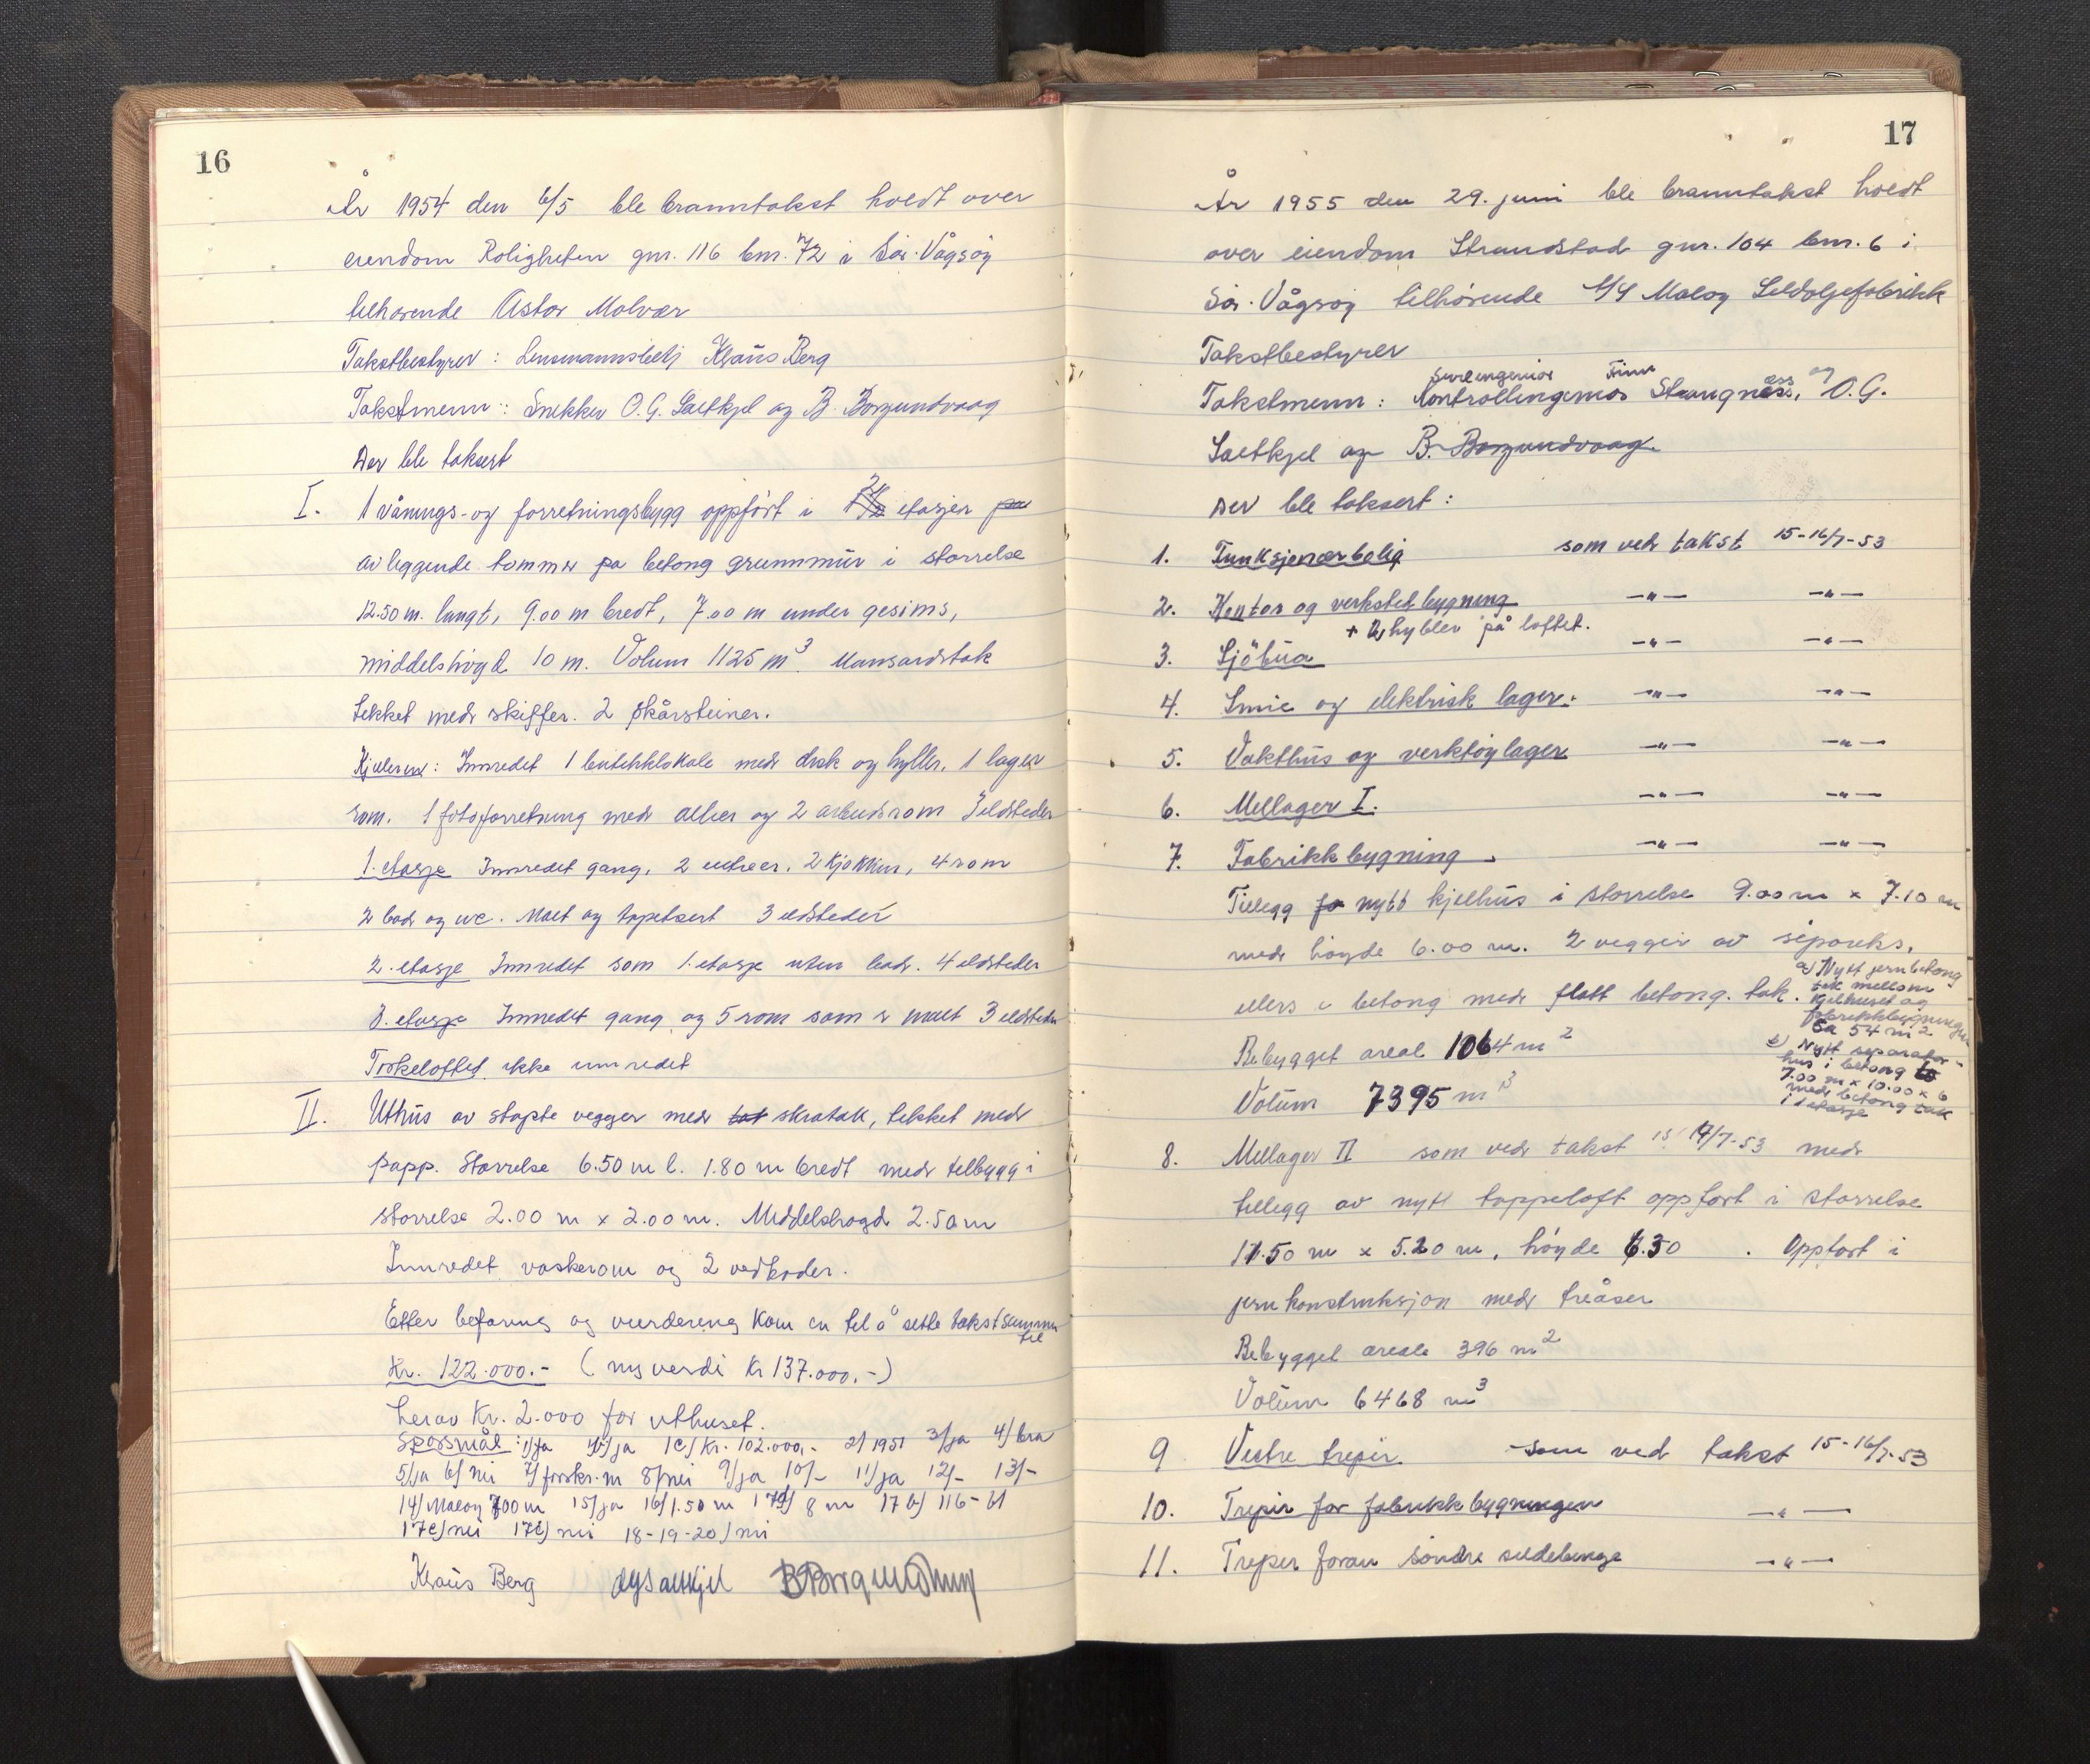 16
År 1954 den 6/5 ble branntakst holdt over
eiendom Roligheten gnr. 116 bnr. 72 i Sør-Vågsøy
tilhørende Astor Molvær
Takstbestyrer: Lensmannsbetj Klaus Berg
Takstmenn: Snekker O.G. Saltkjel og B. Borgundvaag
Der ble taksert
I. 1 vånings- og forretningsbygg oppført i 2½ etasjer på
av liggende tømmer på betong grunnmur i størrelse
12.50 m. langt, 9.00 m bredt, 7.00 m under gesims,
middelshøyd 10 m. Volum 1125 m³. Mansardtak
tekket med skiffer. 2 skårsteiner.
Kjeleren: Innredet 1 butikklokale med disk og hyller, 1 lager
rom. 1 fotoforretning med atelier og 2 arbeidsrom 3 eldsteder
1. etasje Innredet gang, 2 entreer, 2 kjøkken, 4 rom
2 bad og wc. Malt og tapetsert 3 eldsteder
2. etasje Innredet som 1. etasje uten bad. 4 eldsteder
3. etasje Innredet gang og 5 rom som er malt 3 eldsteder
Tørkeloftet ikke innredet
II. Uthus av støpte vegger med tat skråtak, tekket med
papp. Størrelse 6.50 m l. 1.80 m bredt med tilbygg i
størrelse 2.00 m x 2.00 m. Middelshøgd 2.50 m
Innredet vaskerom og 2 vedboder.
Etter befaring og vurdering kom en til å sette takstsummen
til
Kr. 122.000.- (ny verdi Kr 137.000.-)
herav Kr. 2.000 for uthuset.
Spørsmål: 1/ja 1b/ja 1c/Kr. 102.000,- 2/1951 3/ja 4/bra
5/ja 6/nei 7/forskr. m 8/nei 9/ja 10/- 11/ja 12/- 13/-
14/Måløy 700 m 15/ja 16/1.50 m 17a/ 8 m 17b/ 116-61
17c/nei 17d/nei 18-19-20/nei
Klaus Berg OGSaltkjel BBorgundvaag
17
År 1955 den 29. juni ble branntakst holdt
over eiendom Strandstad gnr. 104 bnr. 6 i
Sør-Vågsøy tilhørende A/S Måløy Sildoljefabrikk
Takstbestyrer
Sivilingeniør Finn
Takstmenn: Kontrollingeniør Strangnæss, og O.G.
Saltkjel og B. Borgundvaag
Der ble taksert:
1. Funksjonærbolig som ved takst 15-16/7-53
2. Kontor og verkstedbygning -"- -"-
+ 2 hybler på loftet.
3. Sjöbua -"- -"-
4. Smie og elektrisk lager. -"- -"-
5. Vakthus og verktøylager -"- -"-
6. Mellager I. -"- -"-
7. Fabrikkbygning -"- -"-
Tillegg for nytt kjelhus i størrelse 9.00 m x 7.10 m
med høyde 6.00 m. 2 vegger av siporeks,
ellers i betong med flatt betong. tak.
a) Nytt jernbetong
tak mellom
kjelhuset og
fabrikkbygningen
ca 54 m²
b) Nytt separator-
hus i betong to
7.00 m x 10.00 x 6
med betong tak
i 1 etasje
Bebygget areal 1064 m²
Volum 7395 m³
8. Mellager II som ved takst 15/16/7-53 med
tillegg av nytt toppeloft oppført i størrelse
11.50 m x 5.20 m, høyde 6.30 . Oppført i
jernkonstruksjon med treåser
Bebygget areale 396 m²
Volum 6468 m³
9 Vestre trepir. som ved takst 15-16/7-53
10. Trepir for fabrikkbygningen -"-
11. Trepir foran søndre sildebinge -"-